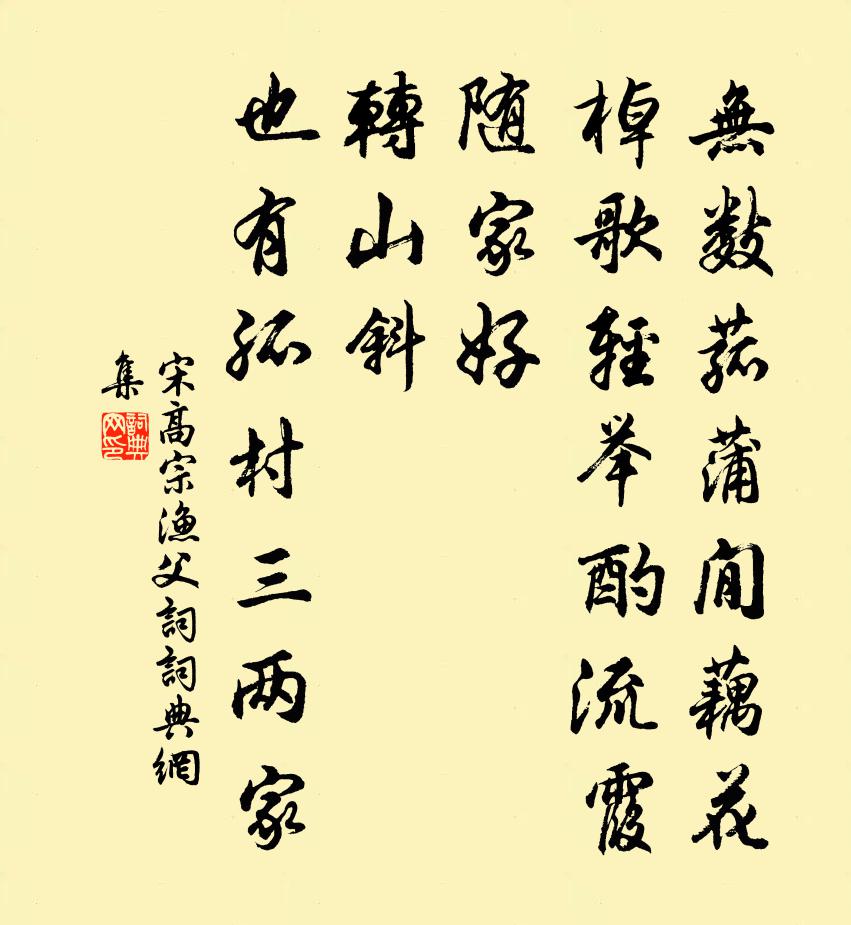 無數菰蒲間藕花
棹歌輕举酌流霞
随家好
轉山斜
也有孤村三两家
宋高宗渔父詞詞典網
集
詞典網印